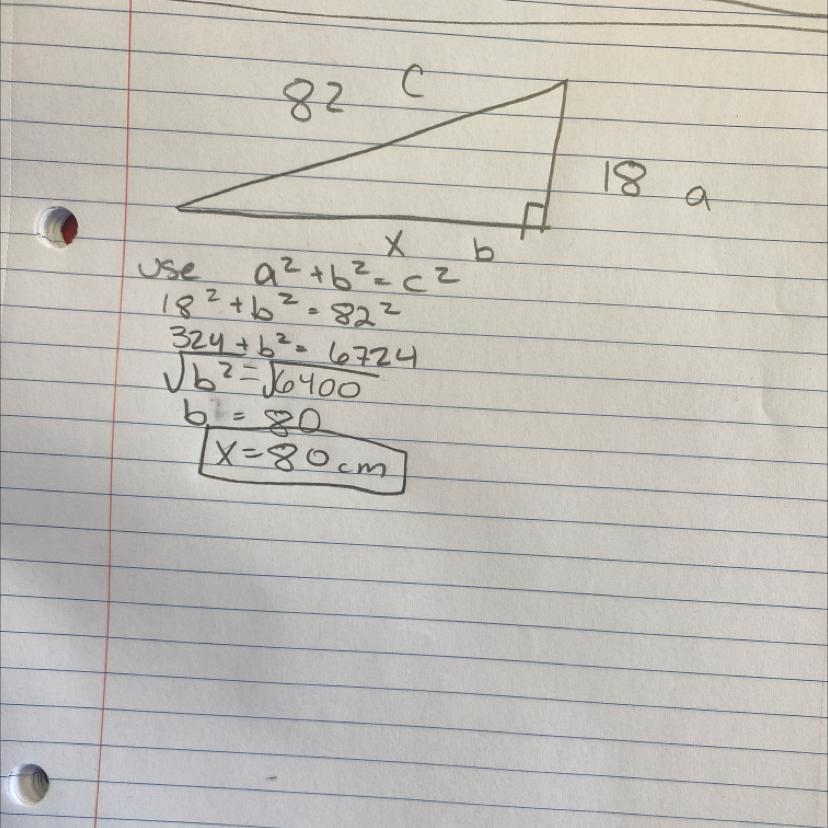 82 C
18 a
x b
use a² + b² = c²
18² + b² = 82²
324 + b² = 6724
√b² = √6400
b = 80
x = 80 cm